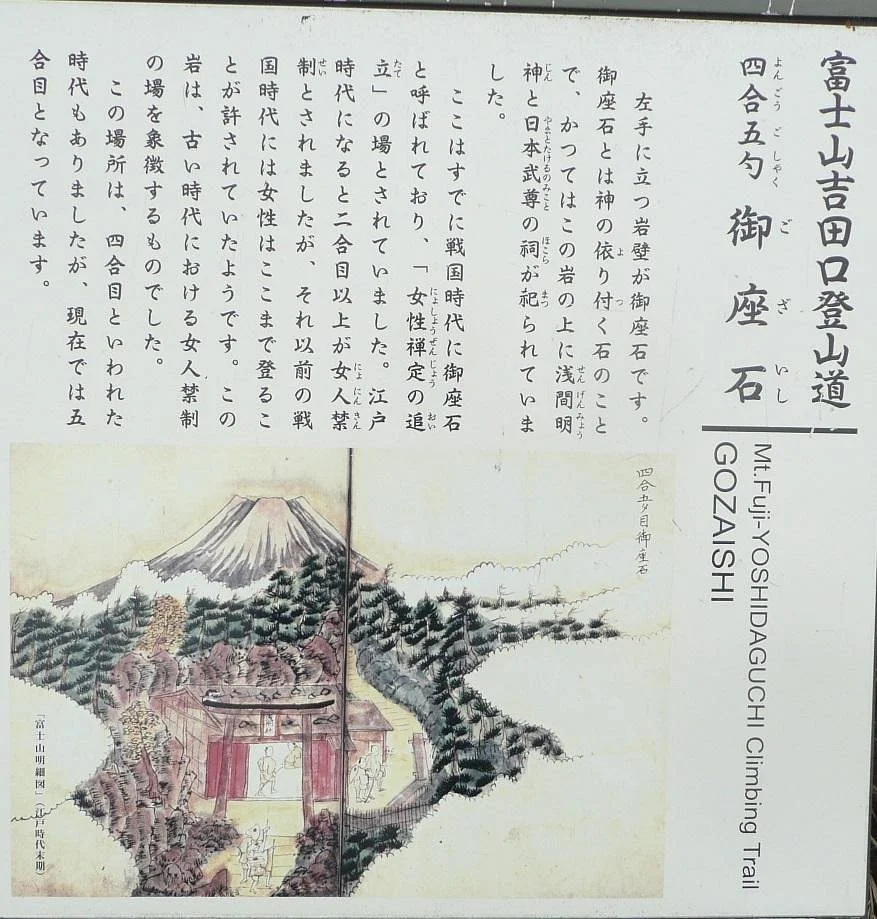 富士山吉田口登山道
四合五勺 御座石
よんごうごしゃく ございし
Mt.Fuji-YOSHIDAGUCHI Climbing Trail
GOZAISHI
左手に立つ岩壁が御座石です。
御座石とは神の依り付く石のこと
よ つ
で、かつてはこの岩の上に浅間明
せんげんみょう
神と日本武尊の祠が祀られていま
じん やまとたけるのみこと ほこら まつ
した。
ここはすでに戦国時代に御座石
と呼ばれており、「女性禅定の追
にょしょうぜんじょう おい
立」の場とされていました。江戸
たて
時代になると二合目以上が女人禁
にょにんきん
制とされましたが、それ以前の戦
せい
国時代には女性はここまで登るこ
とが許されていたようです。この
岩は、古い時代における女人禁制
の場を象徴するものでした。
この場所は、四合目といわれた
時代もありましたが、現在では五
合目となっています。
四合五夕目御座石
「富士山明細図」(江戸時代末期)